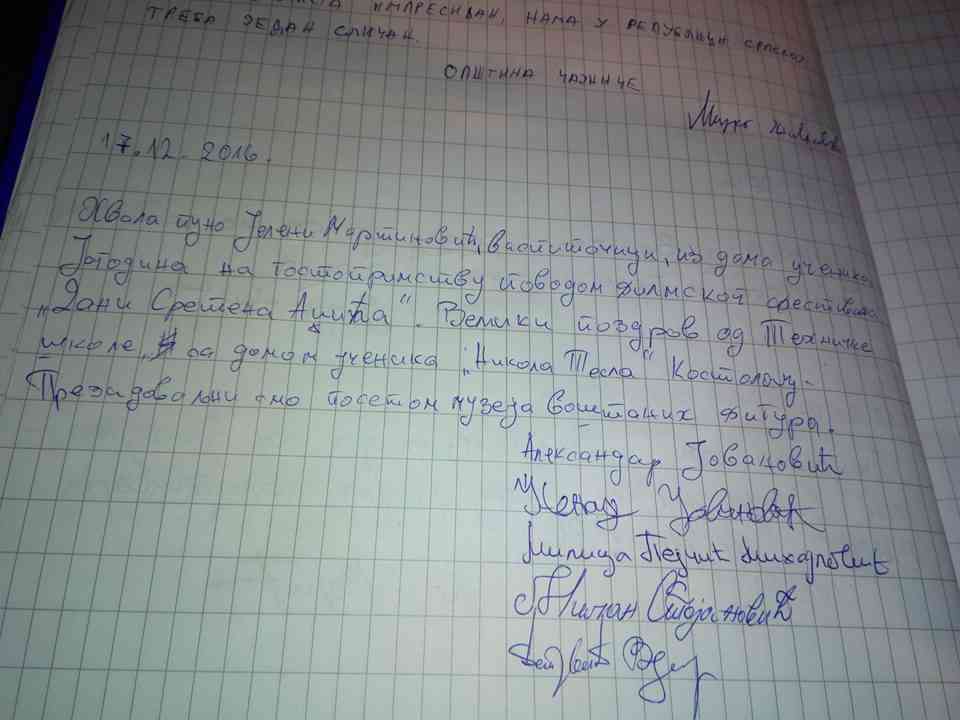 ИМПРЕСИВАН, НАМА У РЕПУБЛИЦИ СРПСКОЈ
ТРЕБА ЈЕДАН СЛИЧАН.
ОПШТИНА ЧАЈНИЧЕ
17.12.2016.
Хвала пуно Јелени Мартиновић, васпитачици, из дома ученика
Јагодина на гостопримству поводом филмског фестивала
„Дани Сретена Аџића". Велики поздрав од Техничке
школе са домом ученика „Никола Тесла" Костолац -
Презадовољни смо посетом музеја воштаних фигура.
Александар Јовановић
Ненад Јовановић
Милица Михајловић
Милан Стојановић